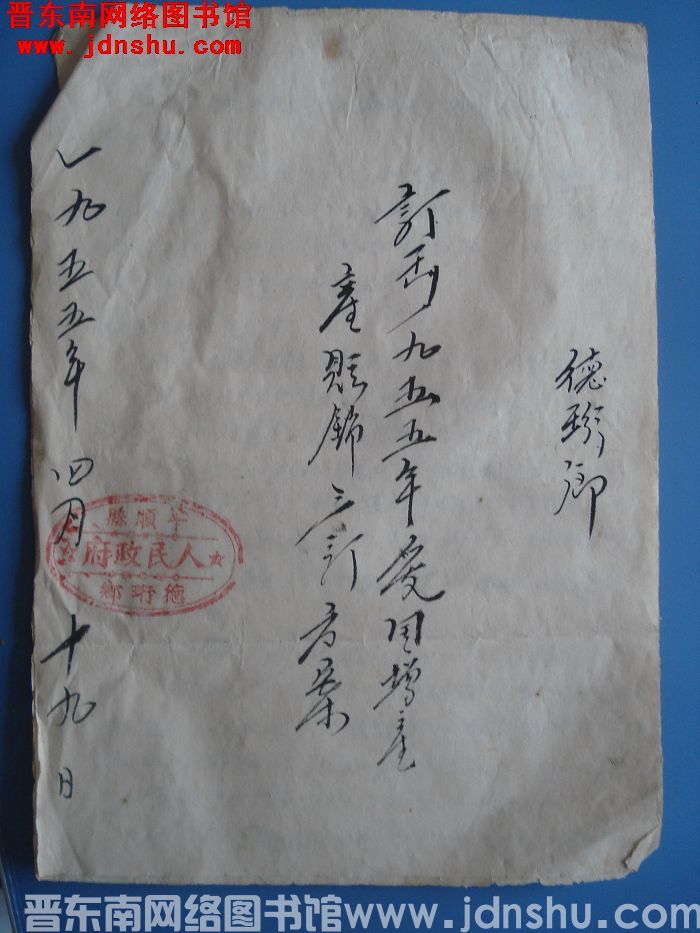 晋东南网络图书馆
www.jdnshu.com
德珩鄉
九五五年爱国增産
三訂方案
一九五五年四月十九日
平順縣
人民政府
德珩鄉
晋东南网络图书馆www.jdnshu.com